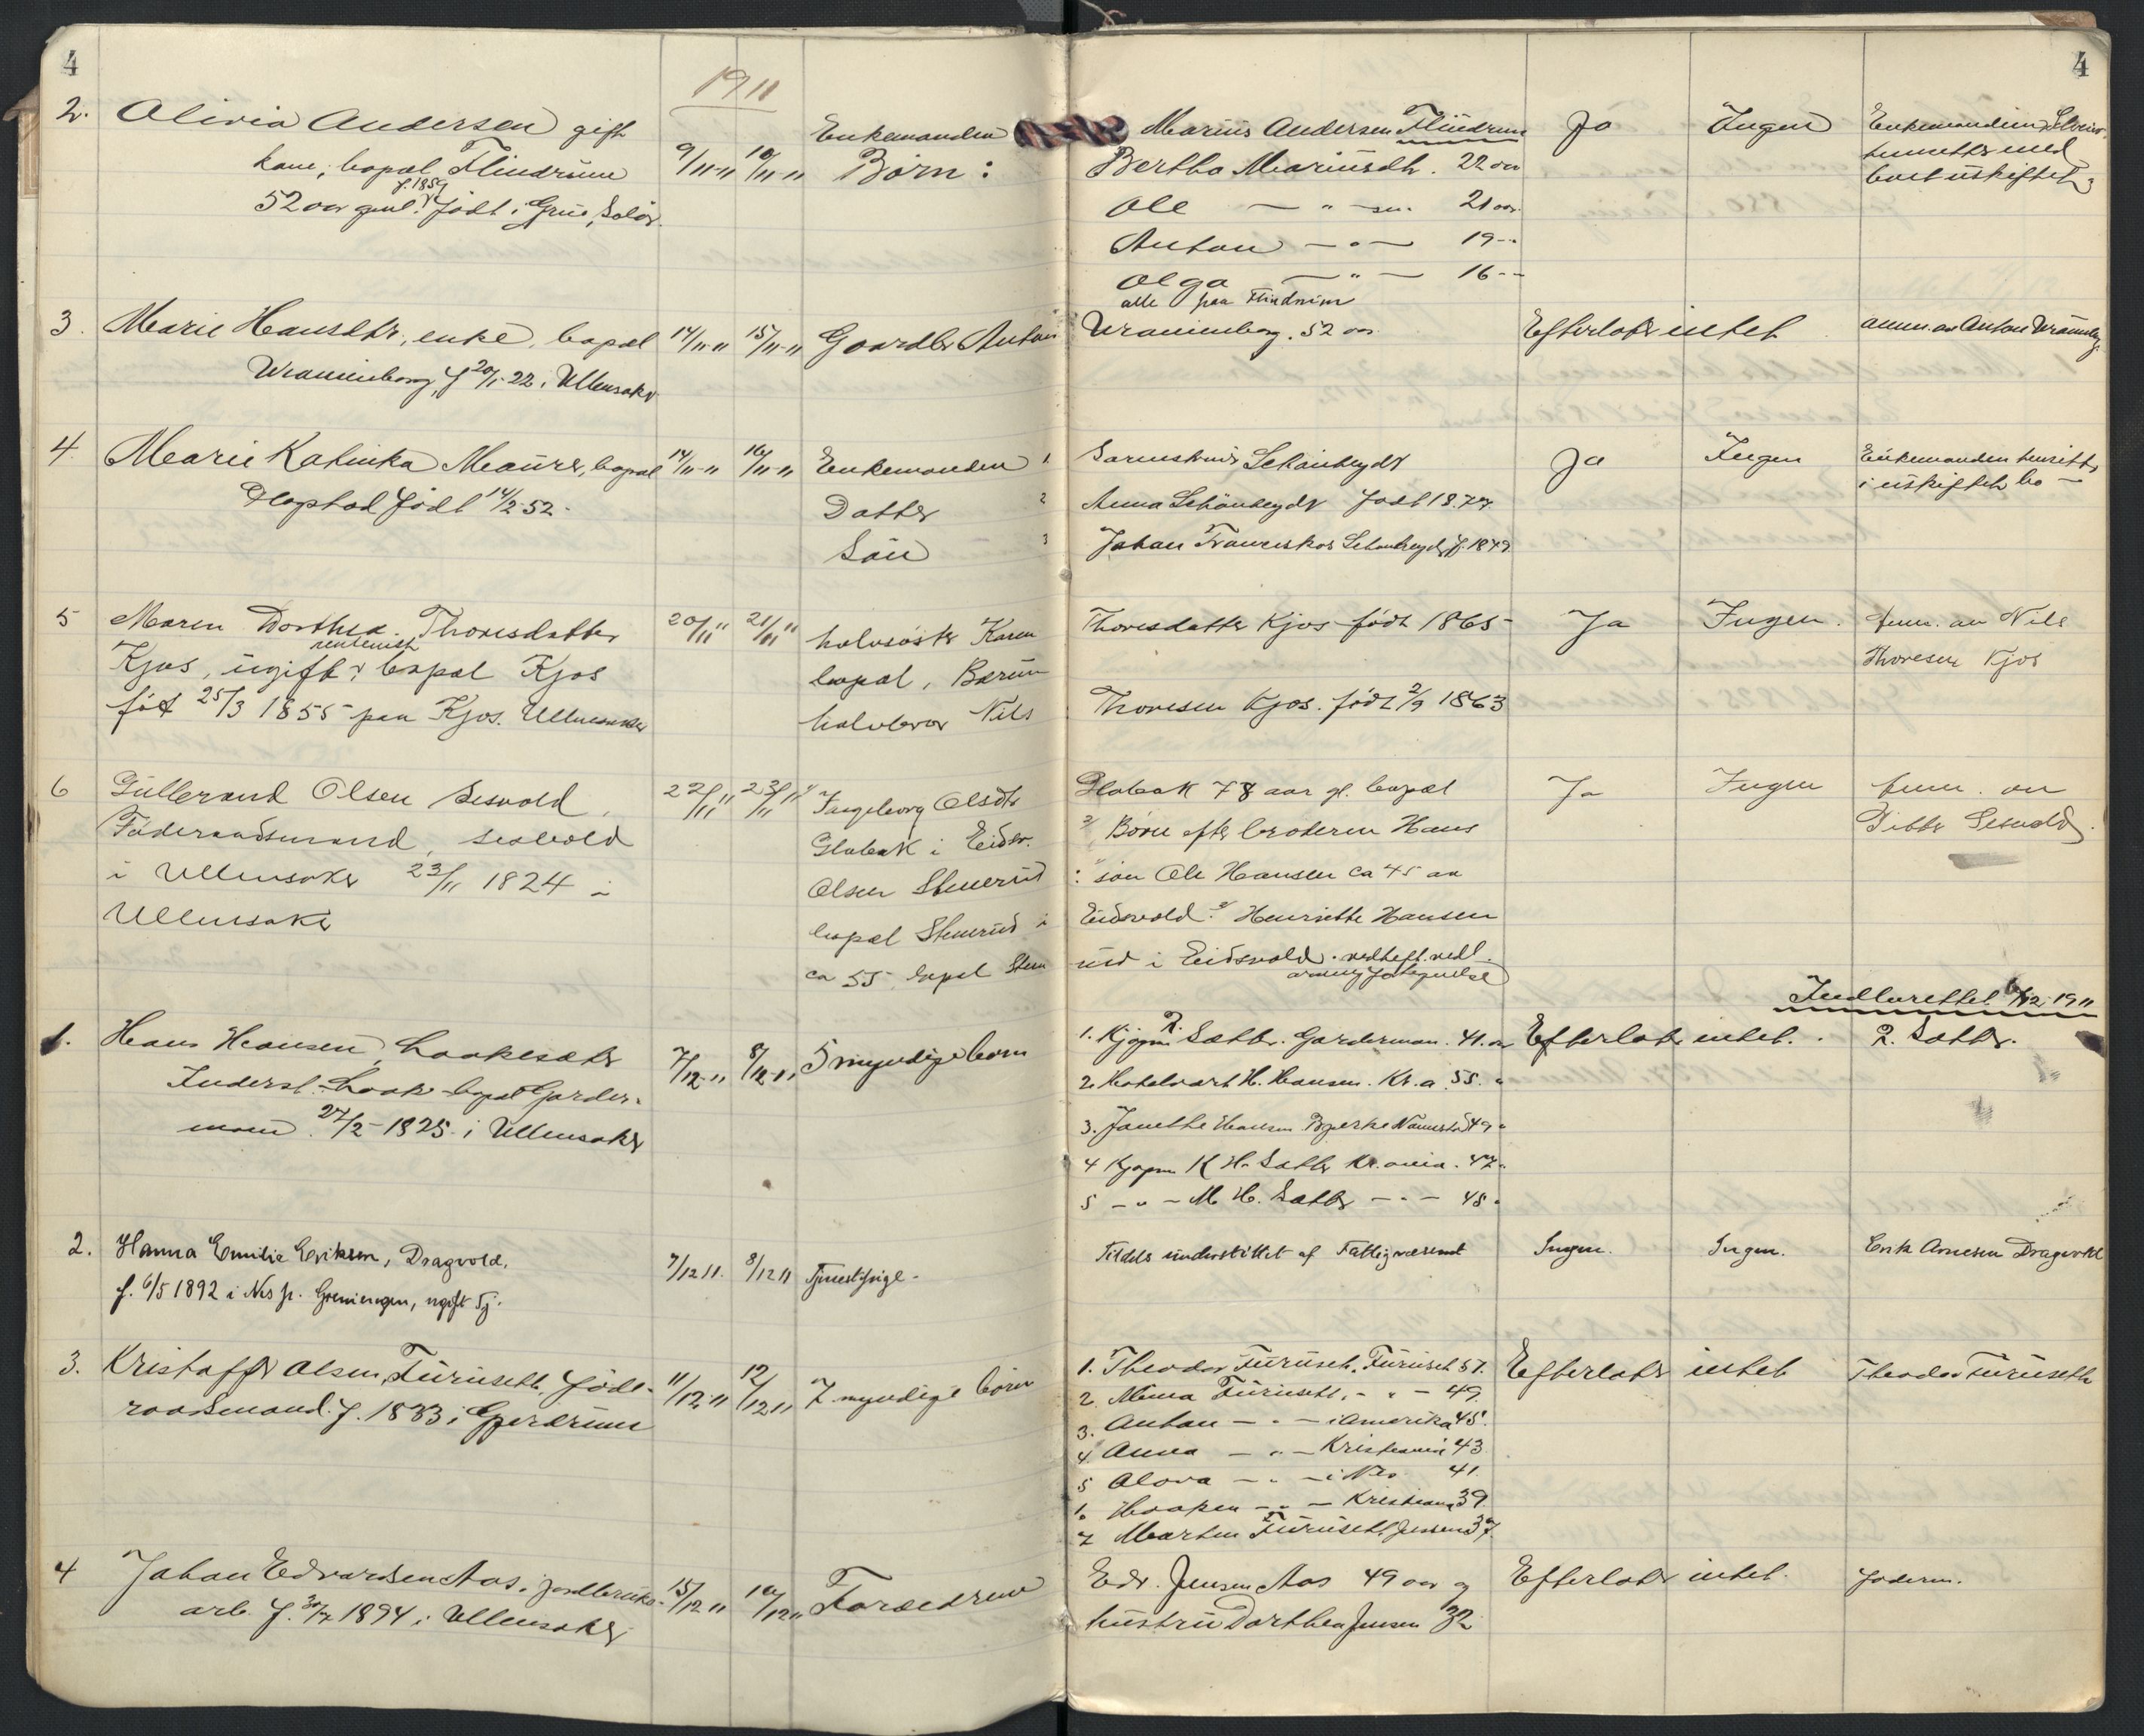 4
1911
2. Olivia Andersen gift
kone, bopæl Flindrum
f. 1859
52 aar gml. Født i Grue, Solør.
9/11-11 10/11-11
Enkemanden
Børn:
3. Marie Hansdtr, enke, bopæl
Wranienborg, f 20/1-22 i Ullensaker
14/11-11 15/11-11 Gaardbr Anton
4. Marie Katinka Maurer, bopæl
født 14/2-52.
14/11-11 16/11-11
Enkemanden 1
Datter 2
Søn 3
5 Maren Dorthea Thoresdatter
Kjos, ugift, bopæl Kjos
født 25/3 1855 paa Kjos. Ullensaker
20/11 11 21/11 11
halvsøster Karen
bopæl, Bærum
halvbror Nils
6 Gulbrand Olsen Sesvold,
Føderaadsmand, Sesvold
i Ullensaker 23/11 1824 i
Ullensaker
22/11 11 23/11 11
Ingeborg Olsdtr
Globak i Eidsv.
Olsen Stenerud
bopæl Stenerud i
ca 55, bopæl Sten
1. Hans Hansen Laakesæter
Inderst. Laak bopæl Garder-
moen. 27/2-1825 i Ullensaker
7/12-11 8/12-11 5 myndige børn
2. Hanna Emilie Eriksen, Dragvold,
f. 6/5 1892 i Nes p. ugift Tj.
7/12 11. 8/12 11 Tjenestpige-
3. Kristoffer Olsen Furuseth, føde-
raadsmand. f. 1833 i Gjerdrum
11/12-11 12/12 11 7 myndige børn
4 Johan Edvardsen Aas, jordbruks-
arb. f. 30/7 1894 i Ullensaker
15/12 11 16/12 11 Forældrene
4
Marius Andersen Flindrum
Bertha Mariusdtr. 22 aar
Ole — " — sen. 21 aar.
Anton — " — 19 --
Olga — " — 16 --
alle paa Flindrum
Ja Ingen Enkemanden
hensitter med
boet uskiftet
Wranienborg. 52 aar Efterlater intet anm. av Anton Wranienbg.
Schönheyder
Anna Schönheyder født 1877
Johan Franciskus Schönheyder f. 1879
Ja Ingen Enkemanden hensitter
i uskiftet bo —
Thoresdatter Kjos født 1865
Thoresen Kjos. født 2/9 1863
Ja Ingen. anm. av Nils
Thoresen Kjos
Globak 78 aar gl. bopæl
2/ Børn efter broderen Hans
: søn Ole Hansen ca 45 aar
Eidsvold. 3/ Henriette Hansen
rud i Eidsvold. vedheft. vedl.
Ja Ingen anm. av
Sesvold.
Indberettet 6/12 1911
1. Kjøpm. R. Sætter. Gardermoen. 41. aar Efterlater intet. R. Sætter.
2. H. Hansen. Kr.a. 55. "
3. Janette Hansen 49 "
4 Kjøpm K H. Sætter Kr.ania. 47. "
5 - " - M. H. Sætter - " - 45 "
Tildels understøttet af Fattigvæsenet Ingen. Ingen. Erik Arnesen Dragvold
1. Theodor Furuseth. Furuseth 51.
2. Mina Furuseth, - " - 49.
3. Anton - " - i Amerika 45.
4. Anna - " - Kristiania 43
5 Olava - " - i Nes 41.
6. Haaken - " - Kristiania 39.
7 Marthea Furuseth Jensen 37
Efterlater intet Theodor Furuseth
Edv. Jensen Aas 49 aar og
hustru Dorthea Jensen 32
Efterlater intet. Joderm.